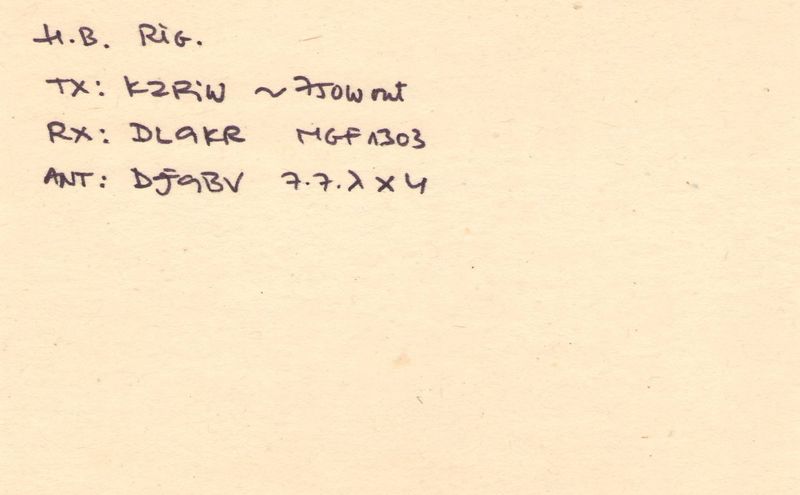 H.B. RiG.
TX: K2RiW ~750W out
RX: DL9KR MGF1303
ANT: DJ9BV 7.7.λ X 4